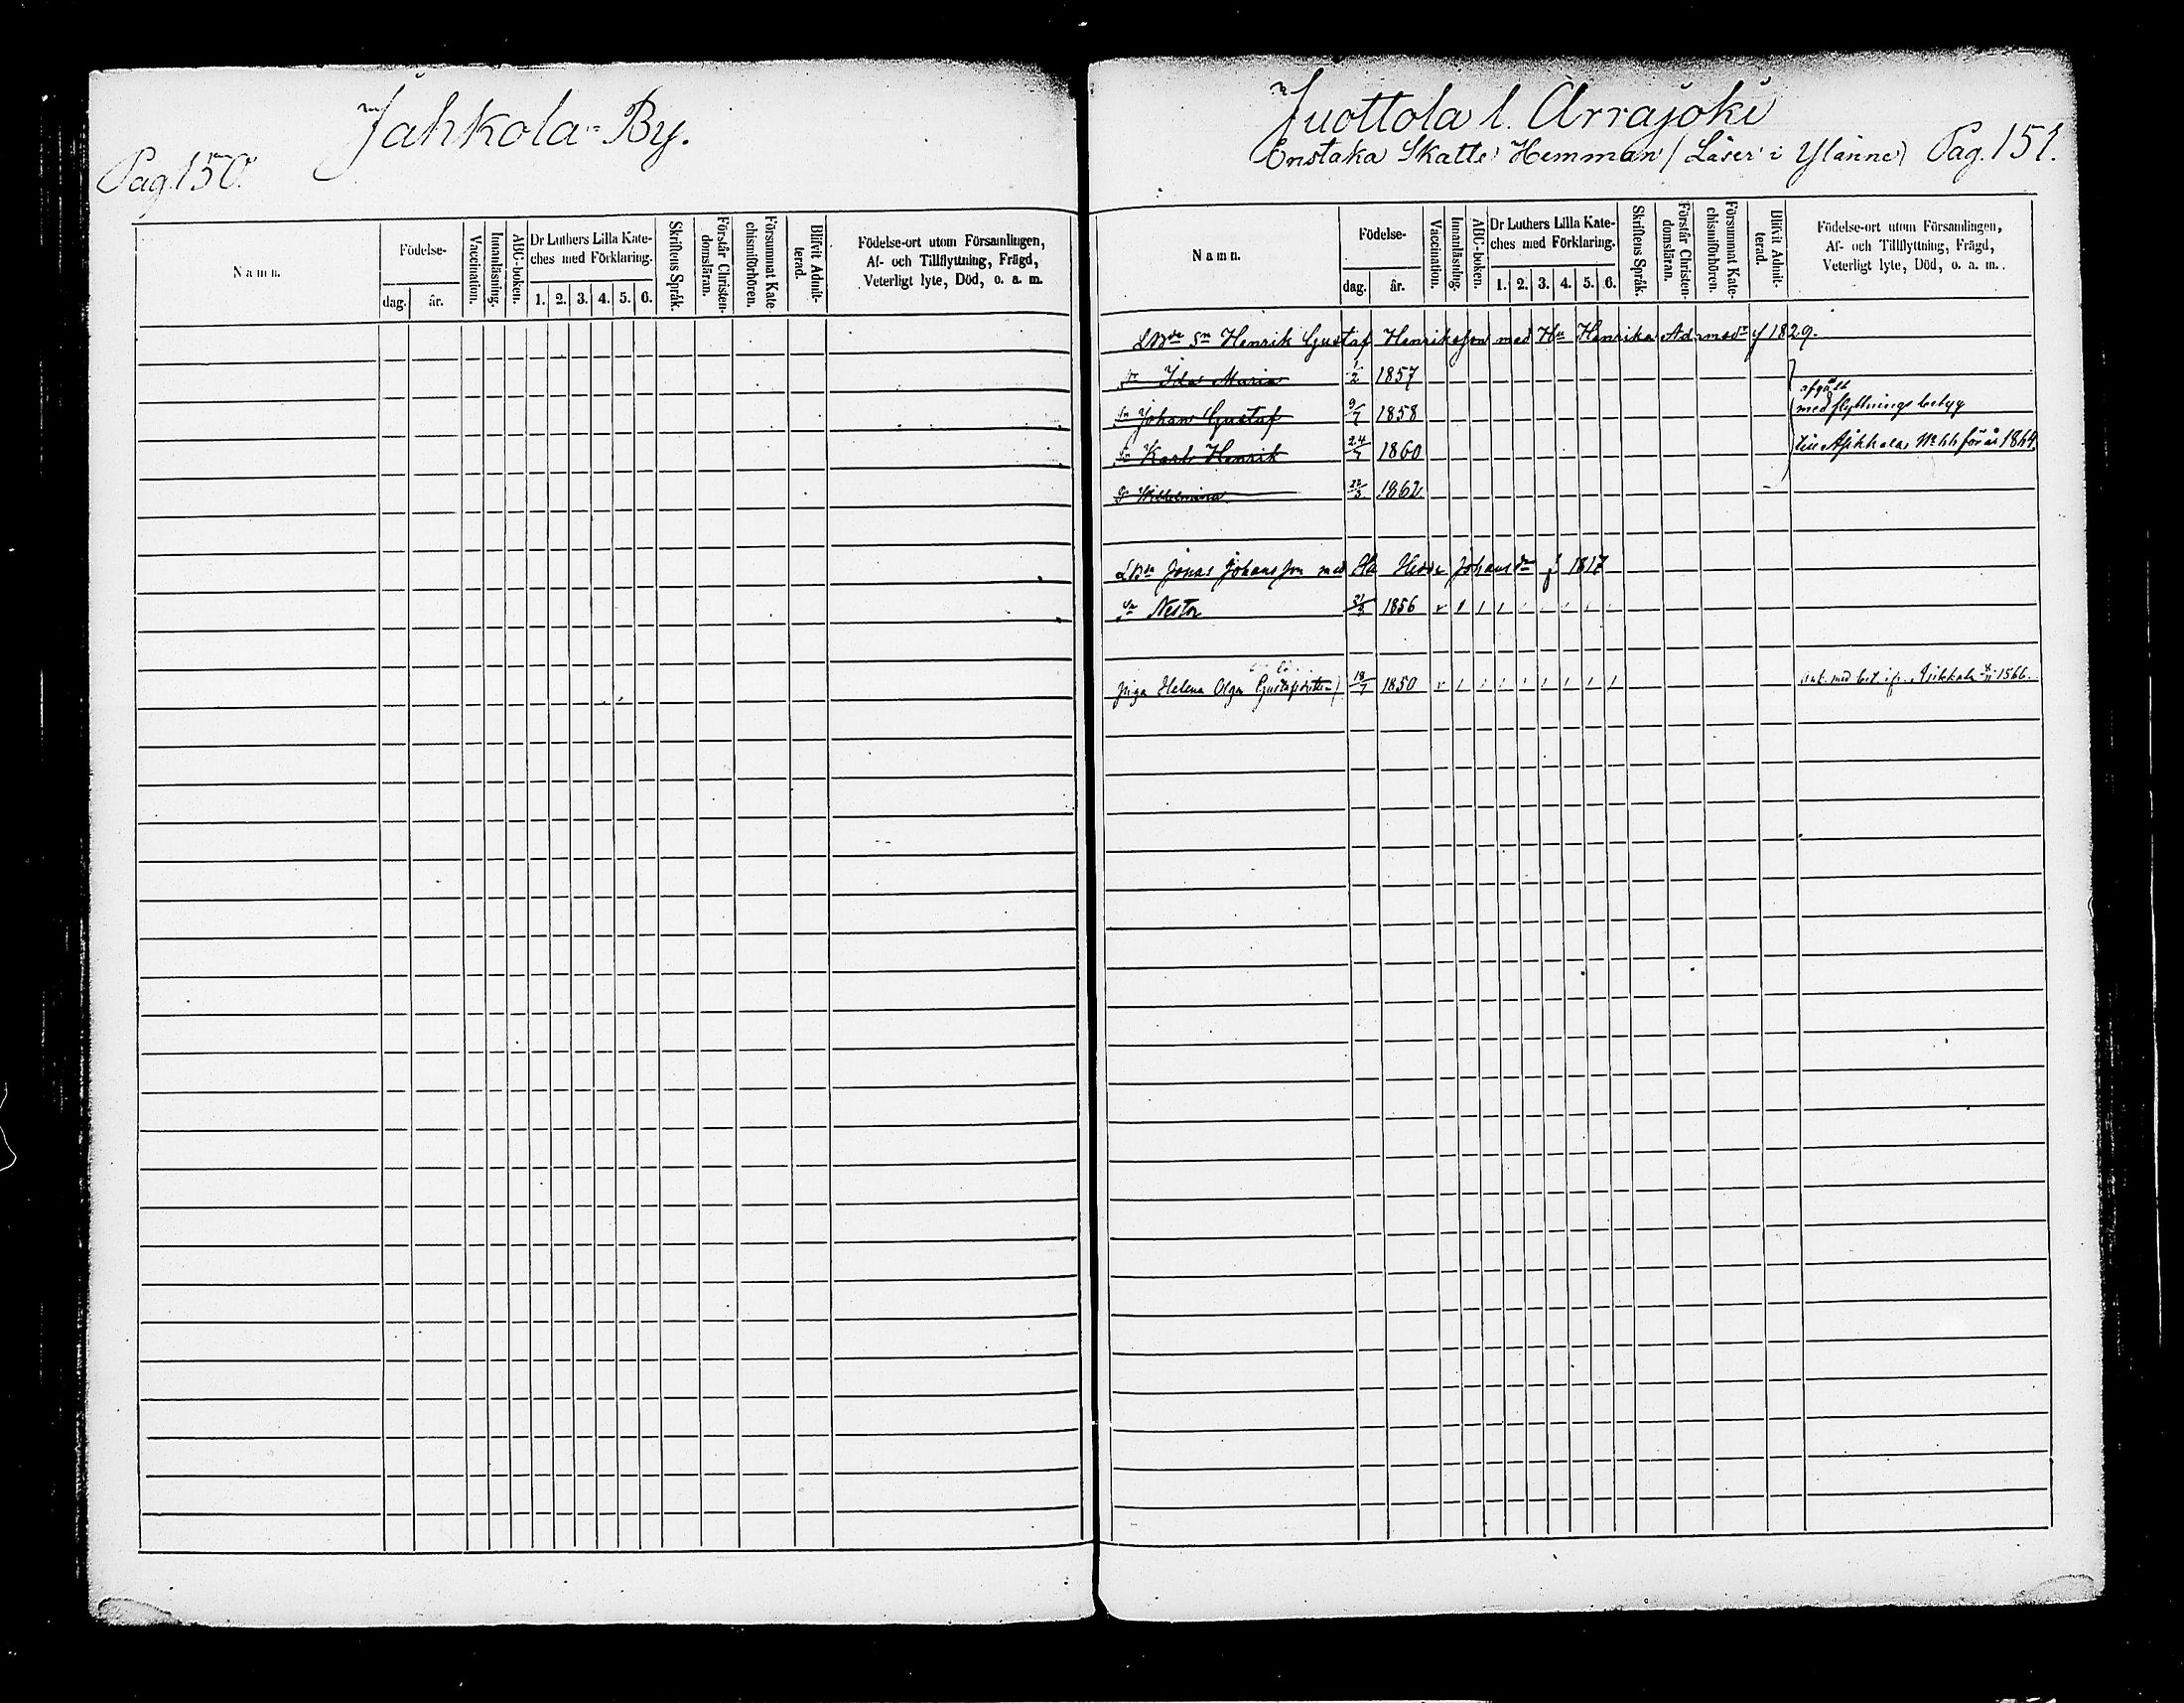 Jahkola By.
Pag. 150.
Namn.
Födelse-
dag. år.
Vaccination.
Innanläsning.
ABC-boken.
Dr Luthers Lilla Kate-
ches med Förklaring.
1. 2. 3. 4. 5. 6.
Skriftens Språk.
Förstår Christen-
domsläran.
Försummat Kate-
chismiförhören.
Blifvit Admit-
terad.
Födelse-ort utom Församlingen,
Af- och Tillflyttning, Frägd,
Veterligt lyte, Död, o. a. m.
Juottola l. Arrajoki
Enstaka Skatte Hemman / Läser i Ylänne) Pag. 151.
Namn.
Födelse-
dag. år.
Vaccination.
Innanläsning.
ABC-boken.
Dr Luthers Lilla Kate-
ches med Förklaring.
1. 2. 3. 4. 5. 6.
Skriftens Språk.
Förstår Christen-
domsläran.
Försummat Kate-
chismiförhören.
Blifvit Admit-
terad.
Födelse-ort utom Församlingen,
Af- och Tillflyttning, Frägd,
Veterligt lyte, Död, o. a. m.
Sn Henrik Gustaf Henriksson med Hu Henrika f 1829.
Dr Ida Maria 1/2 1857
Sn Johan Gustaf 9/7 1858 afgått med flyttningsbetyg
Sn Karl Henrik 24/7 1860 till Asikkala No 66 för år 1864.
Dr Wilhelmina 1862
Jonas Johansson med Hu Hedda Johansdr f 1817
Sn Nestor 1856
piga Helena Olga Gustafsdotter) 18/7 1850 ank. med bet. ifr. Asikkala 1566.